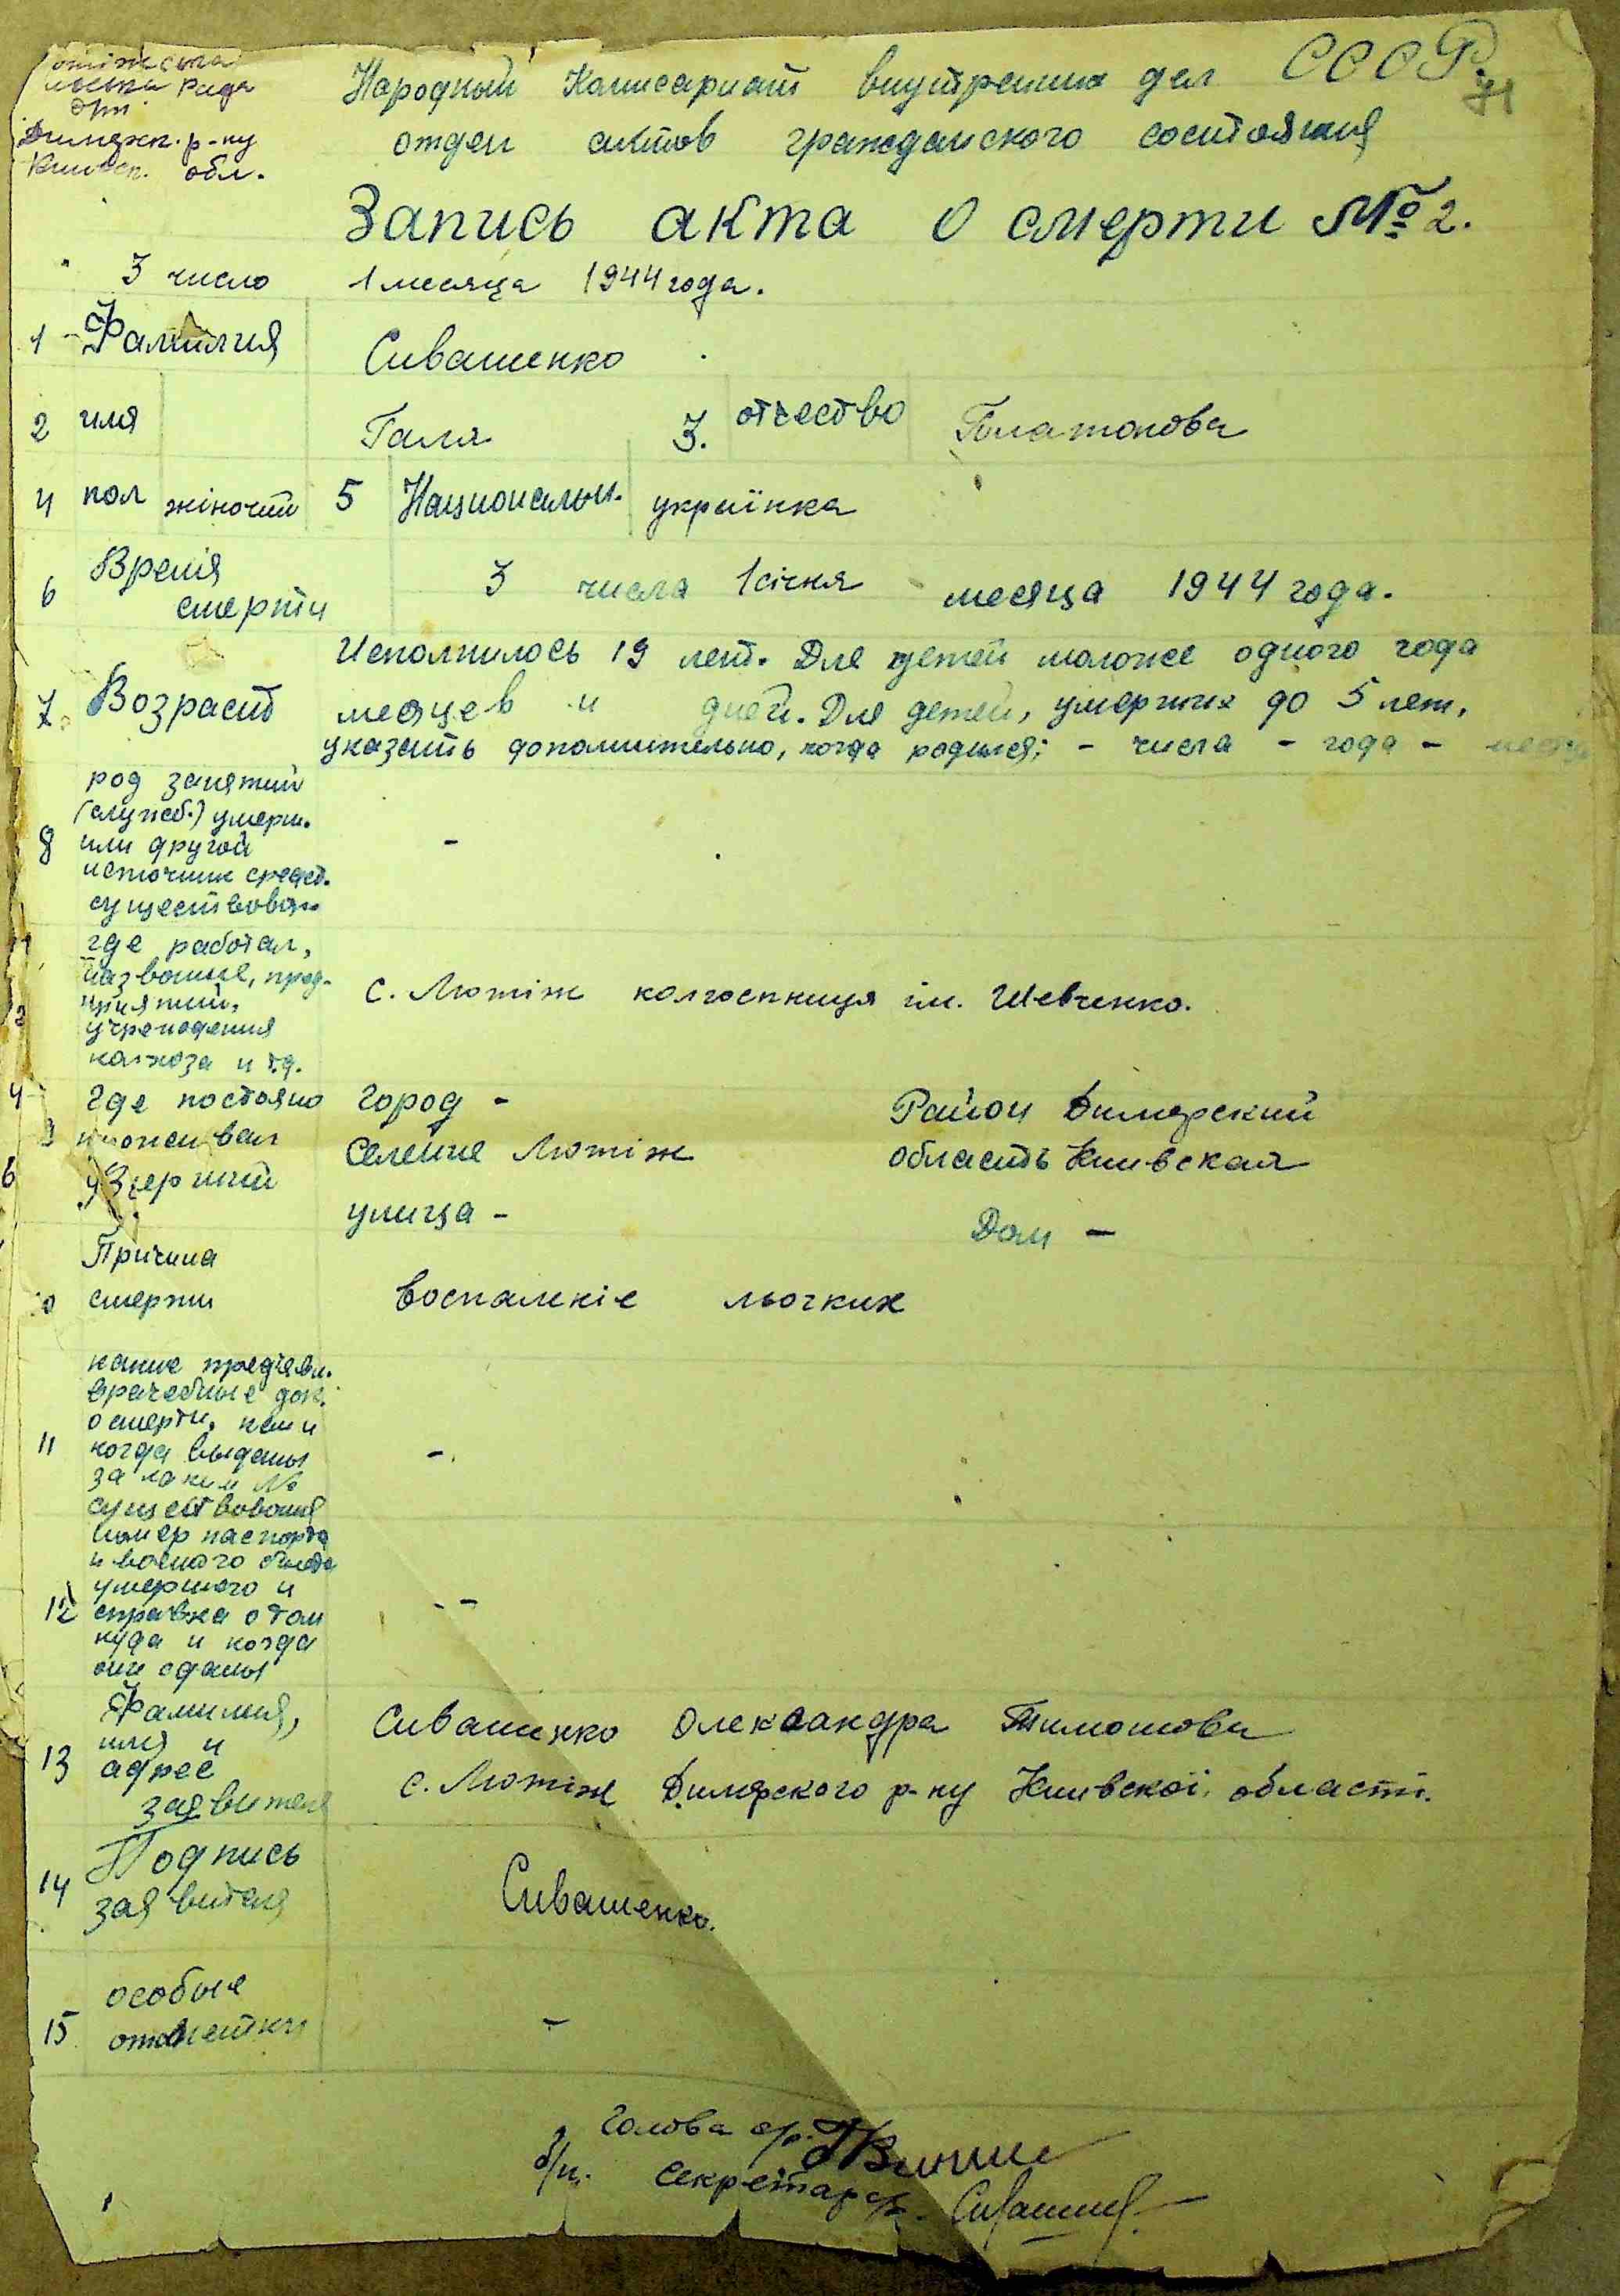 сільська Рада
Димерск. р-ну
Київск. обл.
71
Народный Комисариат внутрених дел СССР.
отдел актов гражданского состояния
Запись акта о смерти № 2.
3 число 1 месяца 1944 года.
1 Фамилия Сивашенко
2 имя Галя 3. отчество Платонова
4 пол жіночий 5 Национальн. українка
6 Время смерти 3 числа 1 січня месяца 1944 года.
Исполнилось 19 лет. Для детей моложе одного года
7. Возраст месяцев и дней. Для детей, умерших до 5 лет,
указать дополнительно, когда родился; - числа - года -
род занятий
(служб.) умерш.
8 или другой -
источник средст.
существован
где работал,
название, пред-
приятий, с. Лютіж колгоспниця ім. Шевченко.
учреждения
колхоза и т.д.
где постояно город - Район Димерский
проживал селение Лютіж область Киивская
умерший
улица - Дом -
Причина
смерти воспаленіе льогких
какие предъявл.
врачебные док.
о смерти, кем и
11 когда выданы -
за каким №
существования
номер паспорта
и военого билета
умершего и
12 справка о том - -
куда и когда
они сданы
Фамилия, Сивашенко Олександра Тимошова
имя и
13 адрес с. Лютіж Димерского р-ну Київскої області.
заявителя
Подпись
14 заявителя Сивашенко.
особые
15 отметки -
Голова с/р.
секретар с/р.